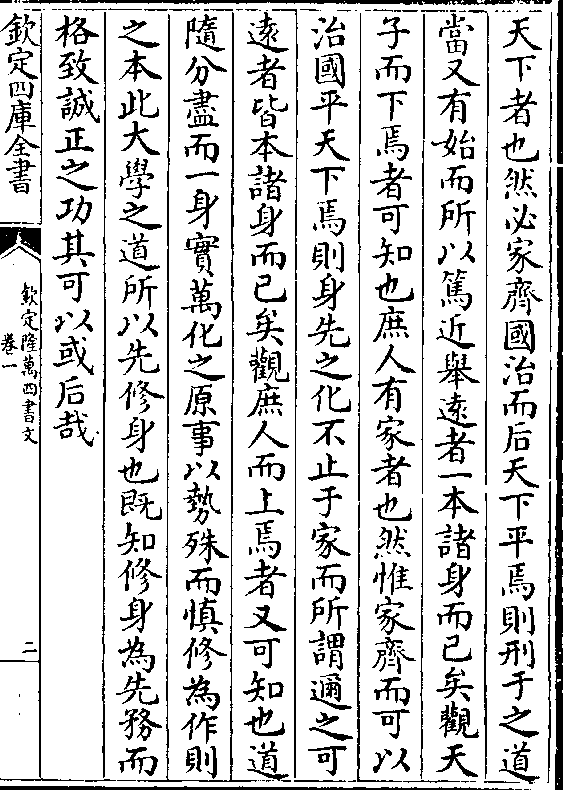 天下者也然必家齊國治而后天下平焉則刑于之道
當又有始而所以篤近舉遠者一本諸身而已矣觀天
子而下焉者可知也庶人有家者也然惟家齊而可以
治國平天下焉則身先之化不止于家而所謂邇之可
遠者皆本諸身而已矣觀庶人而上焉者又可知也道
隨分盡而一身實萬化之原事以勢殊而慎修為作則
之本此大學之道所以先修身也既知修身為先務而
格致誠正之功其可以或后哉
欽定四庫全書
欽定隆萬四書文
卷一
二